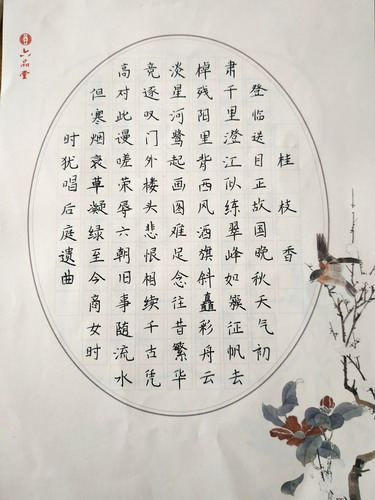 六品堂
桂枝香
登临送目正故国晚秋天气初
肃千里澄江似练翠峰如簇征帆去
棹残阳里背西风酒旗斜矗彩舟云
淡星河鹭起画图难足念往昔繁华
竞逐叹门外楼头悲恨相续千古凭
高对此谩嗟荣辱六朝旧事随流水
但寒烟衰草凝绿至今商女时
时犹唱后庭遗曲